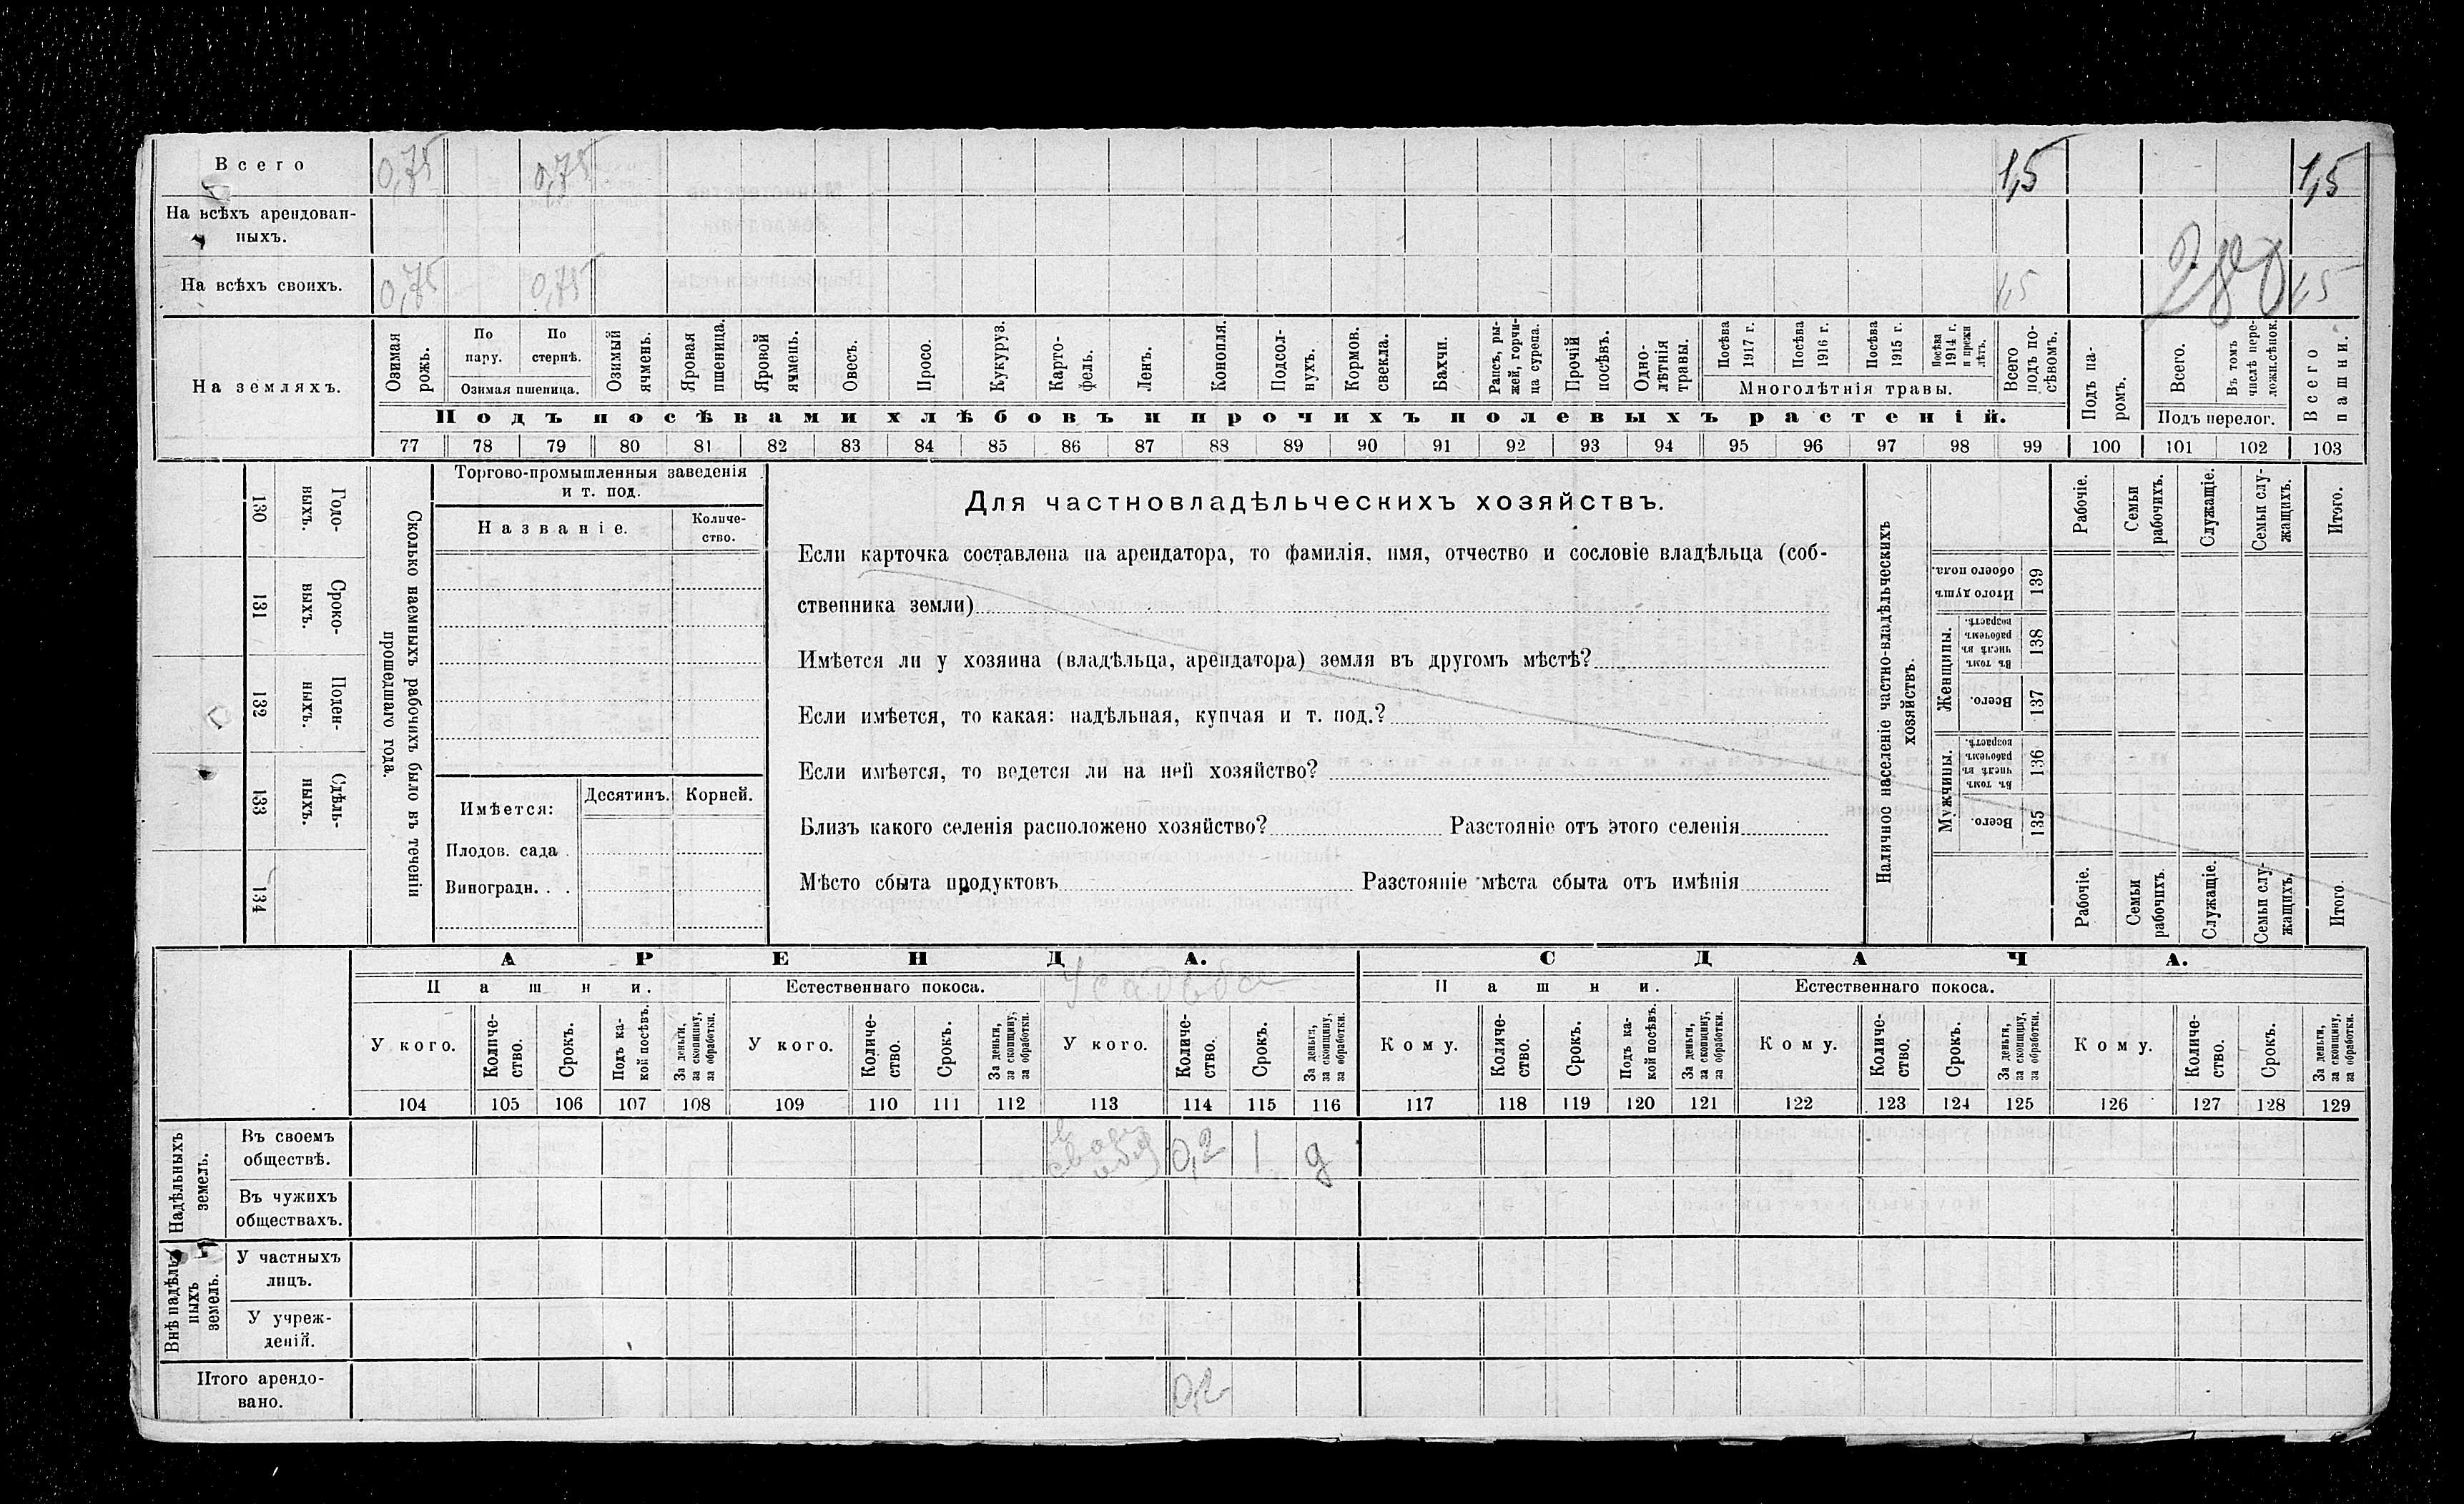 Всего 0,75 0,75 1,5 1,5
На всѣхъ арендован-
ныхъ.
280
На всѣхъ своихъ. 0,75 0,75 1,5 1,5
На земляхъ.
Озимая
рожь.
По
пару.
По
стернѣ.
Озимая пшеница.
Озимый
ячмень.
Яровая
пшеница.
Яровой
ячмень.
Овесъ.
Просо.
Кукуруз.
Карто-
фель.
Ленъ.
Конопля.
Подсол-
нухъ.
Кормов.
свекла.
Бахчи.
Рапсъ, ры-
жей, горчи-
ца сурепа.
Прочій
посѣвъ.
Одно-
лѣтнія
травы.
Посѣва
1917 г.
Посѣва
1916 г.
Посѣва
1915 г.
Посѣва
1914 г.
и прежн
лѣтъ.
Многолѣтнія травы.
Всего
подъ по-
сѣвомъ.
Подъ па-
ромъ.
Всего.
Въ томъ
числѣ пере-
ложн.сѣнок.
Подъ перелог.
Всего
пашни.
Подъ посѣвами хлѣбовъ и прочихъ полевыхъ растеній.
77 78 79 80 81 82 83 84 85 86 87 88 89 90 91 92 93 94 95 96 97 98 99 100 101 102 103
130
Годо-
выхъ.
131
Сроко-
выхъ.
132
Поден-
ныхъ.
133
Сдѣль-
ныхъ.
134
Сколько наемныхъ рабочихъ было въ теченіи
прошедшаго года.
Торгово-промышленныя заведенія
и т. под.
Названіе.
Количе-
ство.
Имѣется:
Десятинъ. Корней.
Плодов. сада .
Виноградн. . .
Для частновладѣльческихъ хозяйствъ.
Если карточка составлена на арендатора, то фамилія, имя, отчество и сословіе владѣльца (соб-
ственника земли)
Имѣется ли у хозяина (владѣльца, арендатора) земля въ другомъ мѣстѣ?
Если имѣется, то какая: надѣльная, купчая и т. под.?
Если имѣется, то ведется ли на ней хозяйство?
Близъ какого селенія расположено хозяйство? Разстояніе отъ этого селенія
Мѣсто сбыта продуктовъ Разстояніе мѣста сбыта отъ имѣнія
Наличное населеніе частно-владѣльческихъ
хозяйствъ.
Рабочіе.
Семьи
рабочихъ.
Служащіе.
Семьи слу-
жащихъ.
Итого.
Итого душъ
обоего пола.
139
Женщины.
Въ томъ
числѣ въ
рабочемъ
возрастѣ.
138
Всего.
137
Мужчины.
Въ томъ
числѣ въ
рабочемъ
возрастѣ.
136
Всего.
135
Рабочіе.
Семьи
рабочихъ.
Служащіе.
Семьи слу-
жащихъ.
Итого.
АРЕНДА. СДАЧА.
Пашни. Естественнаго покоса. Усадьба Пашни. Естественнаго покоса.
У кого.
Количе-
ство.
Срокъ.
Подъ ка-
кой посѣвъ.
За деньги,
за скопщину,
за обработки.
У кого.
Количе-
ство.
Срокъ.
За деньги,
за скопщину,
за обработки.
У кого.
Количе-
ство.
Срокъ.
За деньги,
за скопщину,
за обработки.
Кому.
Количе-
ство.
Срокъ.
Подъ ка-
кой посѣвъ.
За деньги,
за скопщину,
за обработки.
Кому.
Количе-
ство.
Срокъ.
За деньги,
за скопщину,
за обработки.
Кому.
Количе-
ство.
Срокъ.
За деньги,
за скопщину,
за обработки.
104 105 106 107 108 109 110 111 112 113 114 115 116 117 118 119 120 121 122 123 124 125 126 127 128 129
Надѣльныхъ
земель.
Въ своемъ
обществѣ.
0,2 1 д
Въ чужихъ
обществахъ.
Внѣ надѣль-
ныхъ
земель.
У частныхъ
лицъ.
У учреж-
деній.
Итого арендо-
вано.
0,2